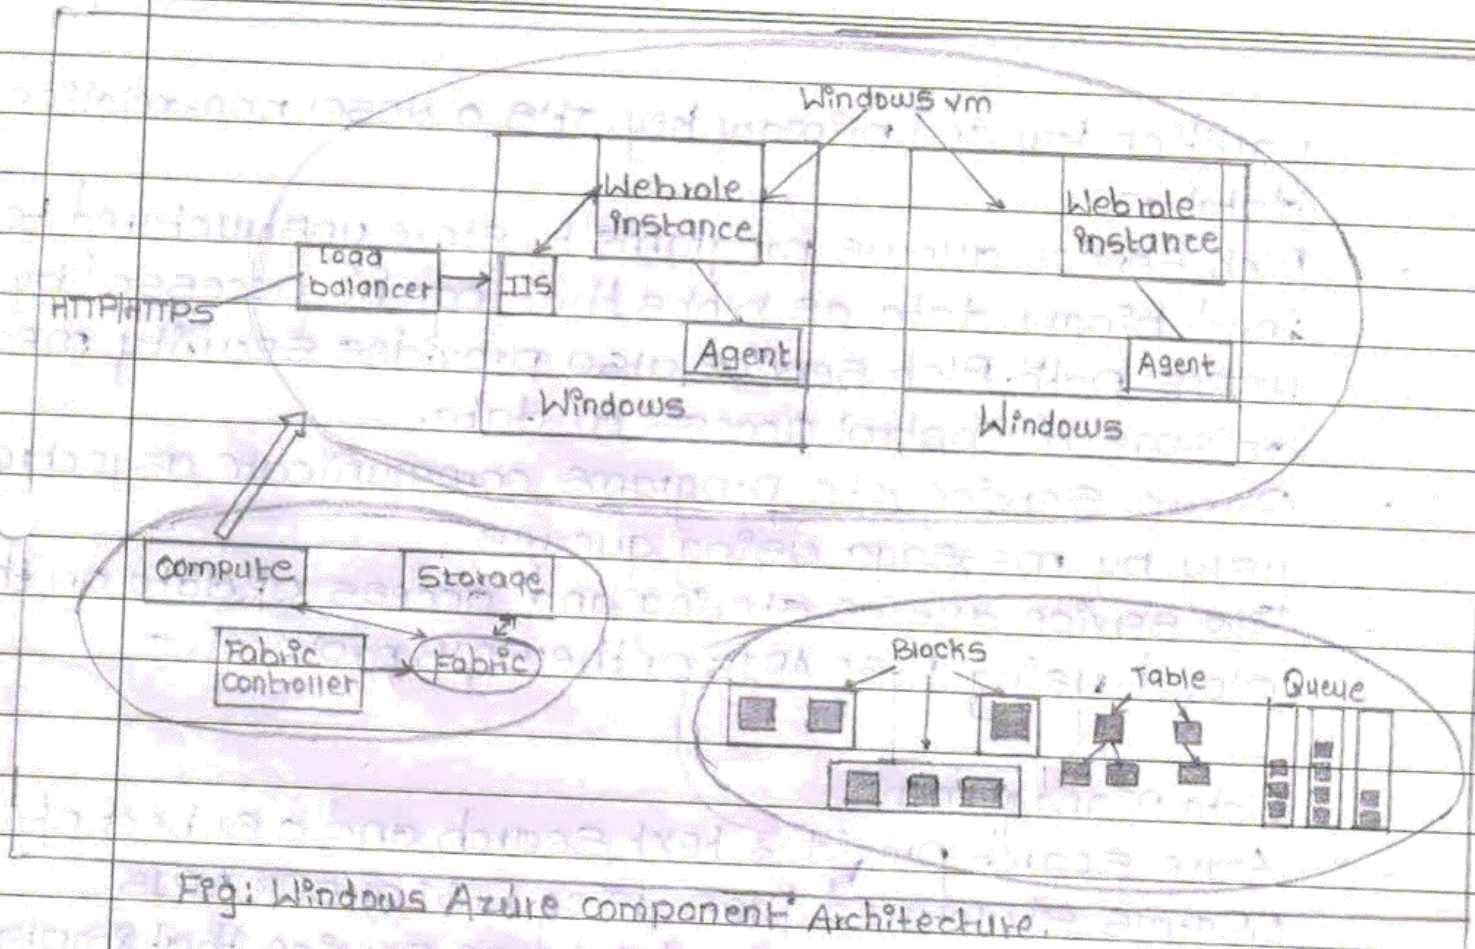 Windows vm
Webrole
instance
Webrole
instance
Load
balancer
IIS
HTTP/HTTPS
Agent
Agent
Windows
Windows
Compute
Storage
Fabric
controller
Fabric
Blocks
Table
Queue
Fig: Windows Azure component Architecture.